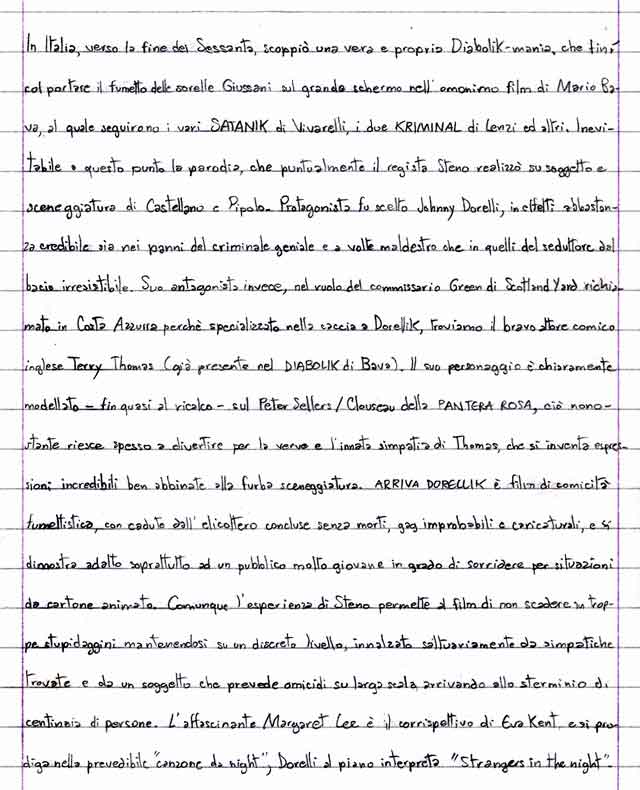 In Italia, verso la fine dei Sessanta, scoppiò una vera e propria Diabolik-mania, che finì
col portare il fumetto delle sorelle Giussani sul grande schermo nell'omonimo film di Mario Ba-
va, al quale seguirono i vari SATANIK di Vivarelli, i due KRIMINAL di Lenzi ed altri. Inevi-
tabile a questo punto la parodia, che puntualmente il regista Steno realizzò su soggetto e
sceneggiatura di Castellano e Pipolo. Protagonista fu scelto Johnny Dorelli, in effetti abbastan-
za credibile sia nei panni del criminale geniale e a volte maldestro che in quelli del seduttore dal
bacio irresistibile. Suo antagonista invece, nel ruolo del commissario Green di Scotland Yard richia-
mato in Costa Azzurra perchè specializzato nella caccia a Dorellik, troviamo il bravo attore comico
inglese Terry Thomas (già presente nel DIABOLIK di Bava). Il suo personaggio è chiaramente
modellato - fin quasi al ricalco - sul Peter Sellers/Clouseau della PANTERA ROSA, ciò nono-
stante riesce spesso a divertire per la verve e l'innata simpatia di Thomas, che si inventa espres-
sioni incredibili ben abbinate alla furba sceneggiatura. ARRIVA DORELLIK è film di comicità
fumettistica, con cadute dall'elicottero concluse senza morti, gag improbabili e caricaturali, e si
dimostra adatto soprattutto ad un pubblico molto giovane in grado di sorridere per situazioni
da cartone animato. Comunque l'esperienza di Steno permette al film di non scadere in trop-
pe stupidaggini mantenendosi su un discreto livello, innalzato saltuariamente da simpatiche
trovate e da un soggetto che prevede omicidi su larga scala, arrivando allo sterminio di
centinaia di persone. L'affascinante Margaret Lee è il corrispettivo di Eva Kent, e si pro
diga nella prevedibile "canzone da night", Dorelli al piano interpreta "Strangers in the night".